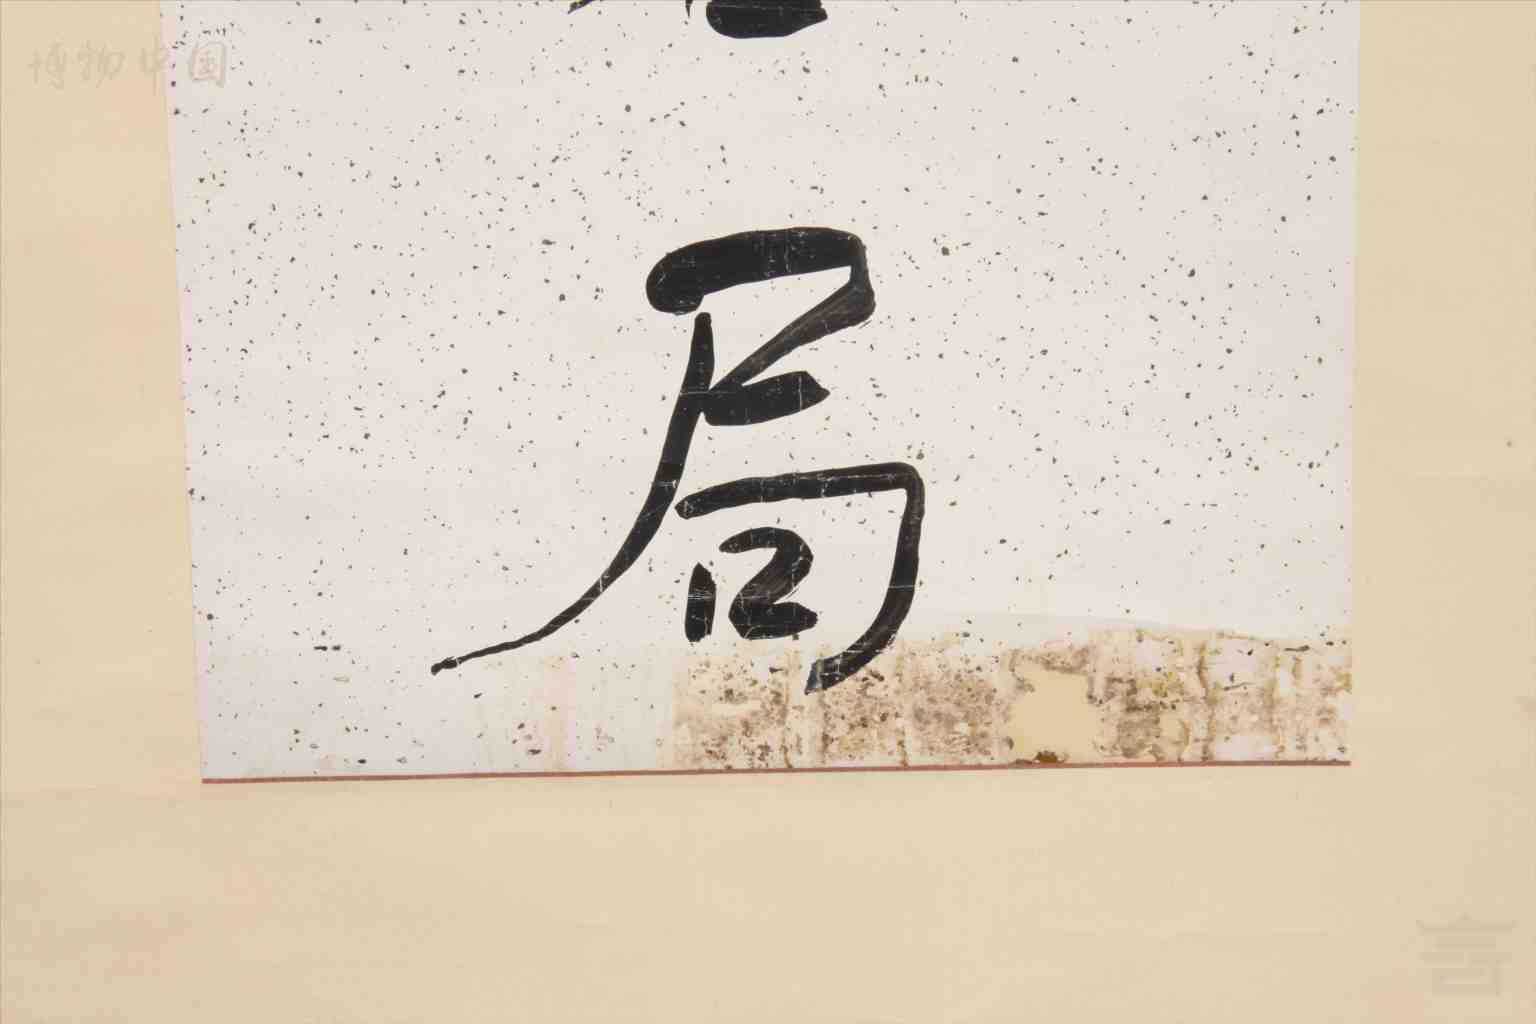 博物中国
局